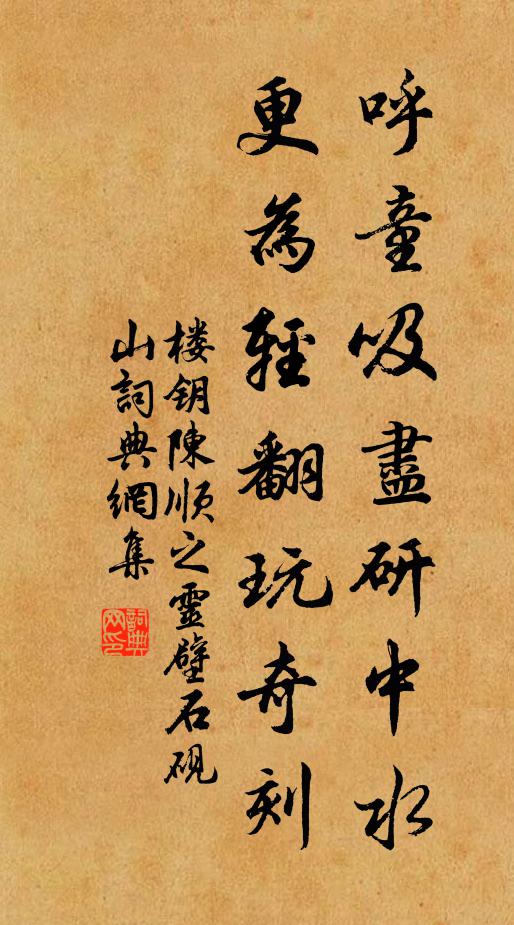 呼童吸盡研中水
更為輕翻玩奇刻
楼钥陳順之靈壁石砚
山詞典網集
詞典网印